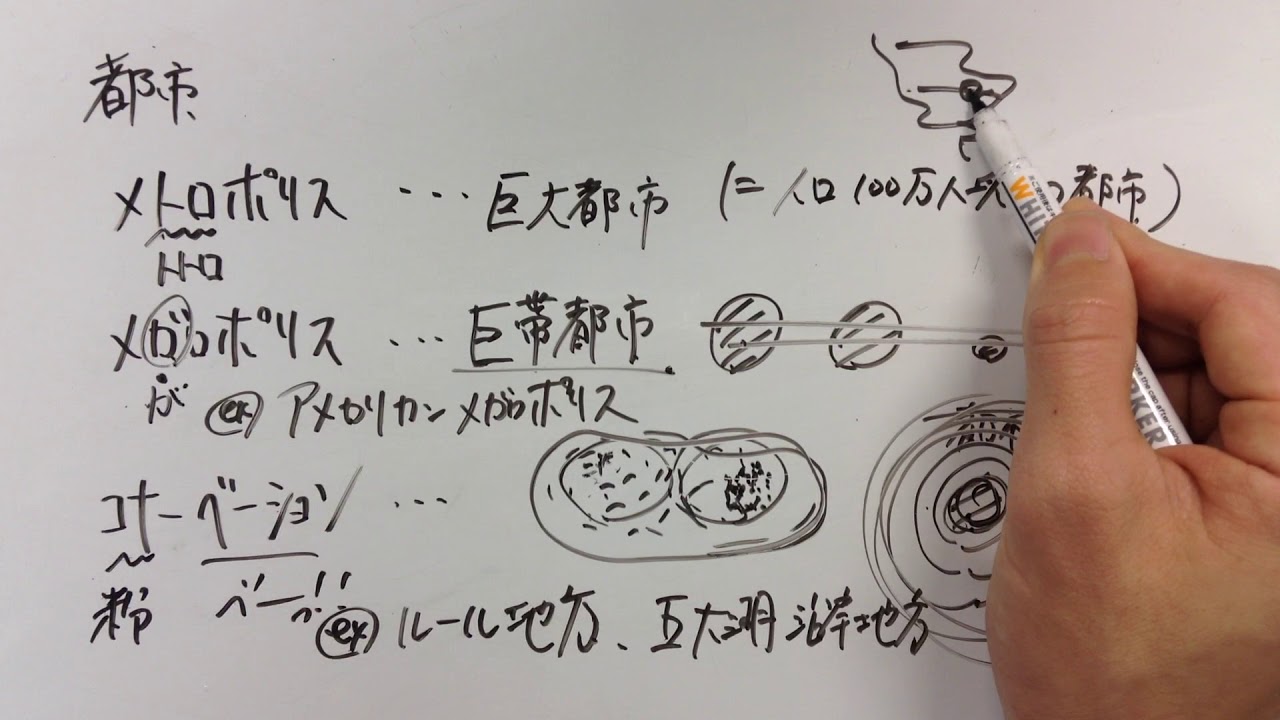 都市
メトロポリス … 巨大都市 (= 人口100万人 都市)
トトロ
メガロポリス … 巨帯都市
が ex アメリカンメガロポリス
コナーベーション …
粉 ベー
ex ルール地方、五大湖沿岸地方